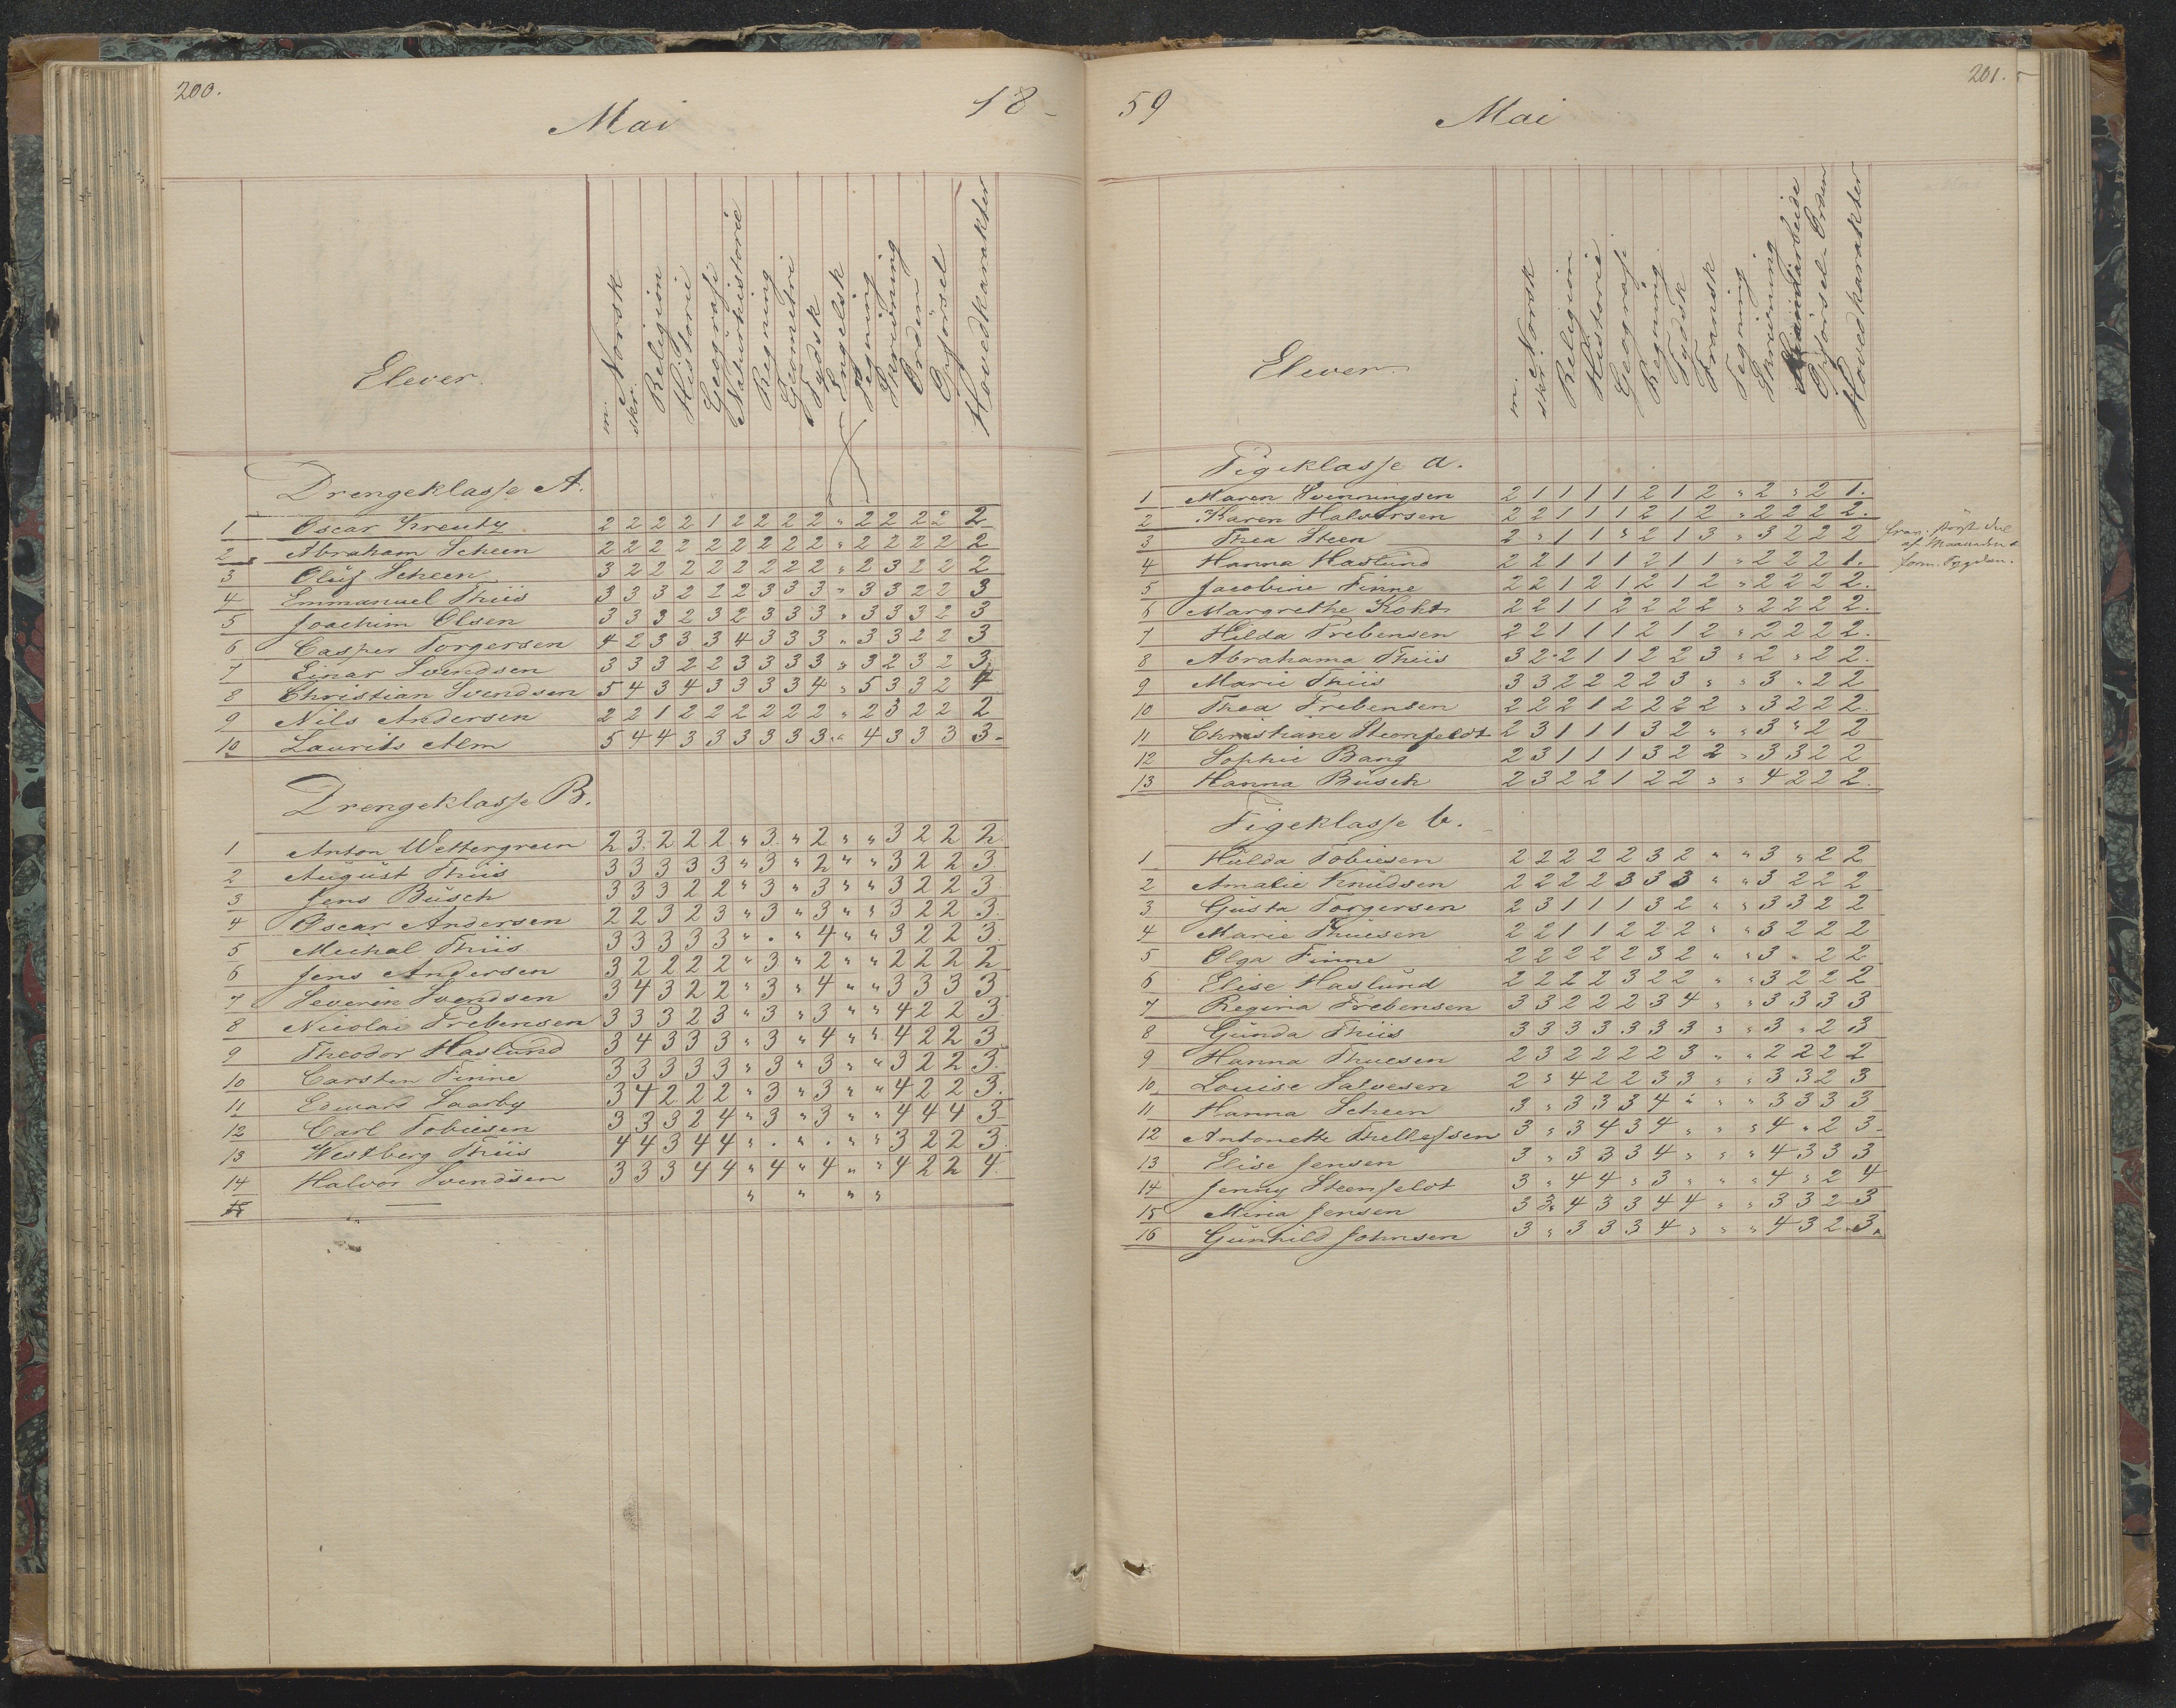 200.
Mai
18
Elever.
m. Norsk
skr.
Religion
Historie
Geografi
Naturhistorie
Regning
Geometri
Tydsk
Engelsk
Tegning
Skrivning
Orden
Opførsel
Hovedkarakter
Drengeklasse A.
1 Oscar Kreutz 2 2 2 2 1 2 2 2 2 " 2 2 2 2 2
2 Abraham Scheen 2 2 2 2 2 2 2 2 2 " 2 2 2 2 2
3 Oluf Scheen 3 2 2 2 2 2 2 2 2 " 2 3 2 2 2
4 Emmanuel Thiis 3 3 3 2 2 2 3 3 3 " 3 3 2 2 3
5 Joachim Olsen 3 3 3 2 3 2 3 3 3 " 3 3 3 2 3
6 Casper Torgersen 4 2 3 3 3 4 3 3 3 " 3 3 2 2 3
7 Einar Svendsen 3 3 3 2 2 3 3 3 3 " 3 2 3 2 3
8 Christian Svendsen 5 4 3 4 3 3 3 3 4 " 5 3 3 2 4
9 Nils Andersen 2 2 1 2 2 2 2 2 2 " 2 3 2 2 2
10 Laurits Alm 5 4 4 3 3 3 3 3 3 " 4 3 3 3 3
Drengeklasse B.
1 Anton Wettergreen 2 3 2 2 2 " 3 " 2 " " 3 2 2 2
2 August Thiis 3 3 3 3 3 " 3 " 2 " " 3 2 2 3
3 Jens Busch 3 3 3 2 2 " 3 " 3 " " 3 2 2 3
4 Oscar Andersen 2 2 3 2 3 " 3 " 3 " " 3 2 2 3.
5 Michal Thiis 3 3 3 3 3 " . " 4 " " 3 2 2 3.
6 Jens Andersen 3 2 2 2 2 " 3 " 2 " " 2 2 2 2
7 Severin Svendsen 3 4 3 2 2 " 3 " 4 " " 3 3 3 3
8 Nicolai Prebensen 3 3 3 2 3 " 3 " 3 " " 4 2 2 3.
9 Theodor Haslund 3 4 3 3 3 " 3 " 4 " " 4 2 2 3
10 Carsten Finne 3 3 3 3 3 " 3 " 3 " " 3 2 2 3.
11 Edward Saarby 3 4 2 2 2 " 3 " 3 " " 4 2 2 3.
12 Carl Tobiesen 3 3 3 2 4 " 3 " 3 " " 4 4 4 3
13 Westberg Thiis 4 4 3 4 4 " . " . " " 3 2 2 3.
14 Halvor Svendsen 3 3 3 4 4 " 4 " 4 " " 4 2 2 4.
15 — " " " "
59
Mai
201.
Elever.
m. Norsk
skr.
Religion
Historie
Geografi
Regning
Tydsk
Fransk
Tegning
Skrivning
Haandarbeide
Opførsel - Orden
Hovedkarakter
Pigeklasse a.
1 Maren Svenningsen 2 1 1 1 1 2 1 2 " 2 " 2 1.
2 Karen Halvorsen 2 2 1 1 1 2 1 2 " 2 2 2 2.
3 Thea Steen 2 " 1 1 " 2 1 3 " 3 2 2 2
4 Hanna Haslund 2 2 1 1 1 2 1 1 " 2 2 2 1.
5 Jacobine Finne 2 2 1 2 1 2 1 2 " 2 2 2 2.
6 Margrethe Koht 2 2 1 1 2 2 2 2 " 2 2 2 2.
7 Hilda Prebensen 2 2 1 1 1 2 1 2 " 2 2 2 2.
8 Abrahama Thiis 3 2 2 1 1 2 2 3 " 2 " 2 2.
9 Marie Thiis 3 3 2 2 2 2 3 " " 3 " 2 2
10 Thea Prebensen 2 2 2 1 2 2 2 2 " 3 2 2 2.
11 Christiane Steenfeldt 2 3 1 1 1 3 2 " " 3 " 2 2
12 Sophie Bang 2 3 1 1 1 3 2 2 " 3 3 2 2
13 Hanna Busch 2 3 2 2 1 2 2 " " 4 2 2 2.
af Maaneden
Pigeklasse b.
1 Hulda Tobiesen 2 2 2 2 2 3 2 " " 3 " 2 2
2 Amalie Knudsen 2 2 2 2 3 3 3 " " 3 2 2 2
3 Gusta Torgersen 2 3 1 1 1 3 2 " " 3 3 2 2
4 Marie Thuesen 2 2 1 1 2 2 2 " " 3 2 2 2
5 Olga Finne 2 2 2 2 2 3 2 " " 3 " 2 2
6 Elise Haslund 2 2 2 2 3 2 2 " " 3 2 2 2
7 Regina Prebensen 3 3 2 2 2 3 4 " " 3 3 3 3
8 Gunda Thiis 3 3 3 3 3 3 3 " " 3 " 2 3
9 Hanna Thuesen 2 3 2 2 2 2 3 " " 2 2 2 2
10 Louise Salvesen 2 " 4 2 2 3 3 " " 3 3 2 3
11 Hanna Scheen 3 " 3 3 3 4 " " " 3 3 3 3
12 Antonette Thellefsen 3 " 3 4 3 4 " " " 4 " 2 3
13 Elise Jensen 3 " 3 3 3 4 " " " 4 3 3 3
14 Jenny Steenfeldt 3 " 4 4 " 3 " " " 4 " 2 4
15 Mina Jensen 3 3 4 3 3 4 4 " " 3 3 2 3
16 Gunhild Johnsen 3 " 3 3 3 4 " " " 4 3 2 3.